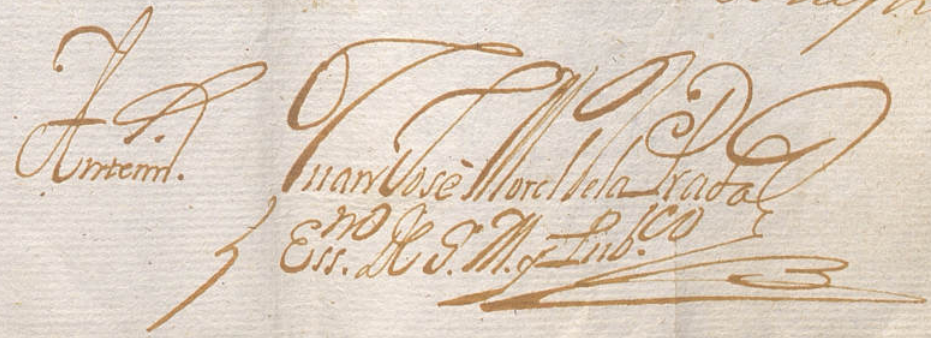 Antemi.
Juan Josè Morel de la Prada
Essno. de S. M. y Pubco.